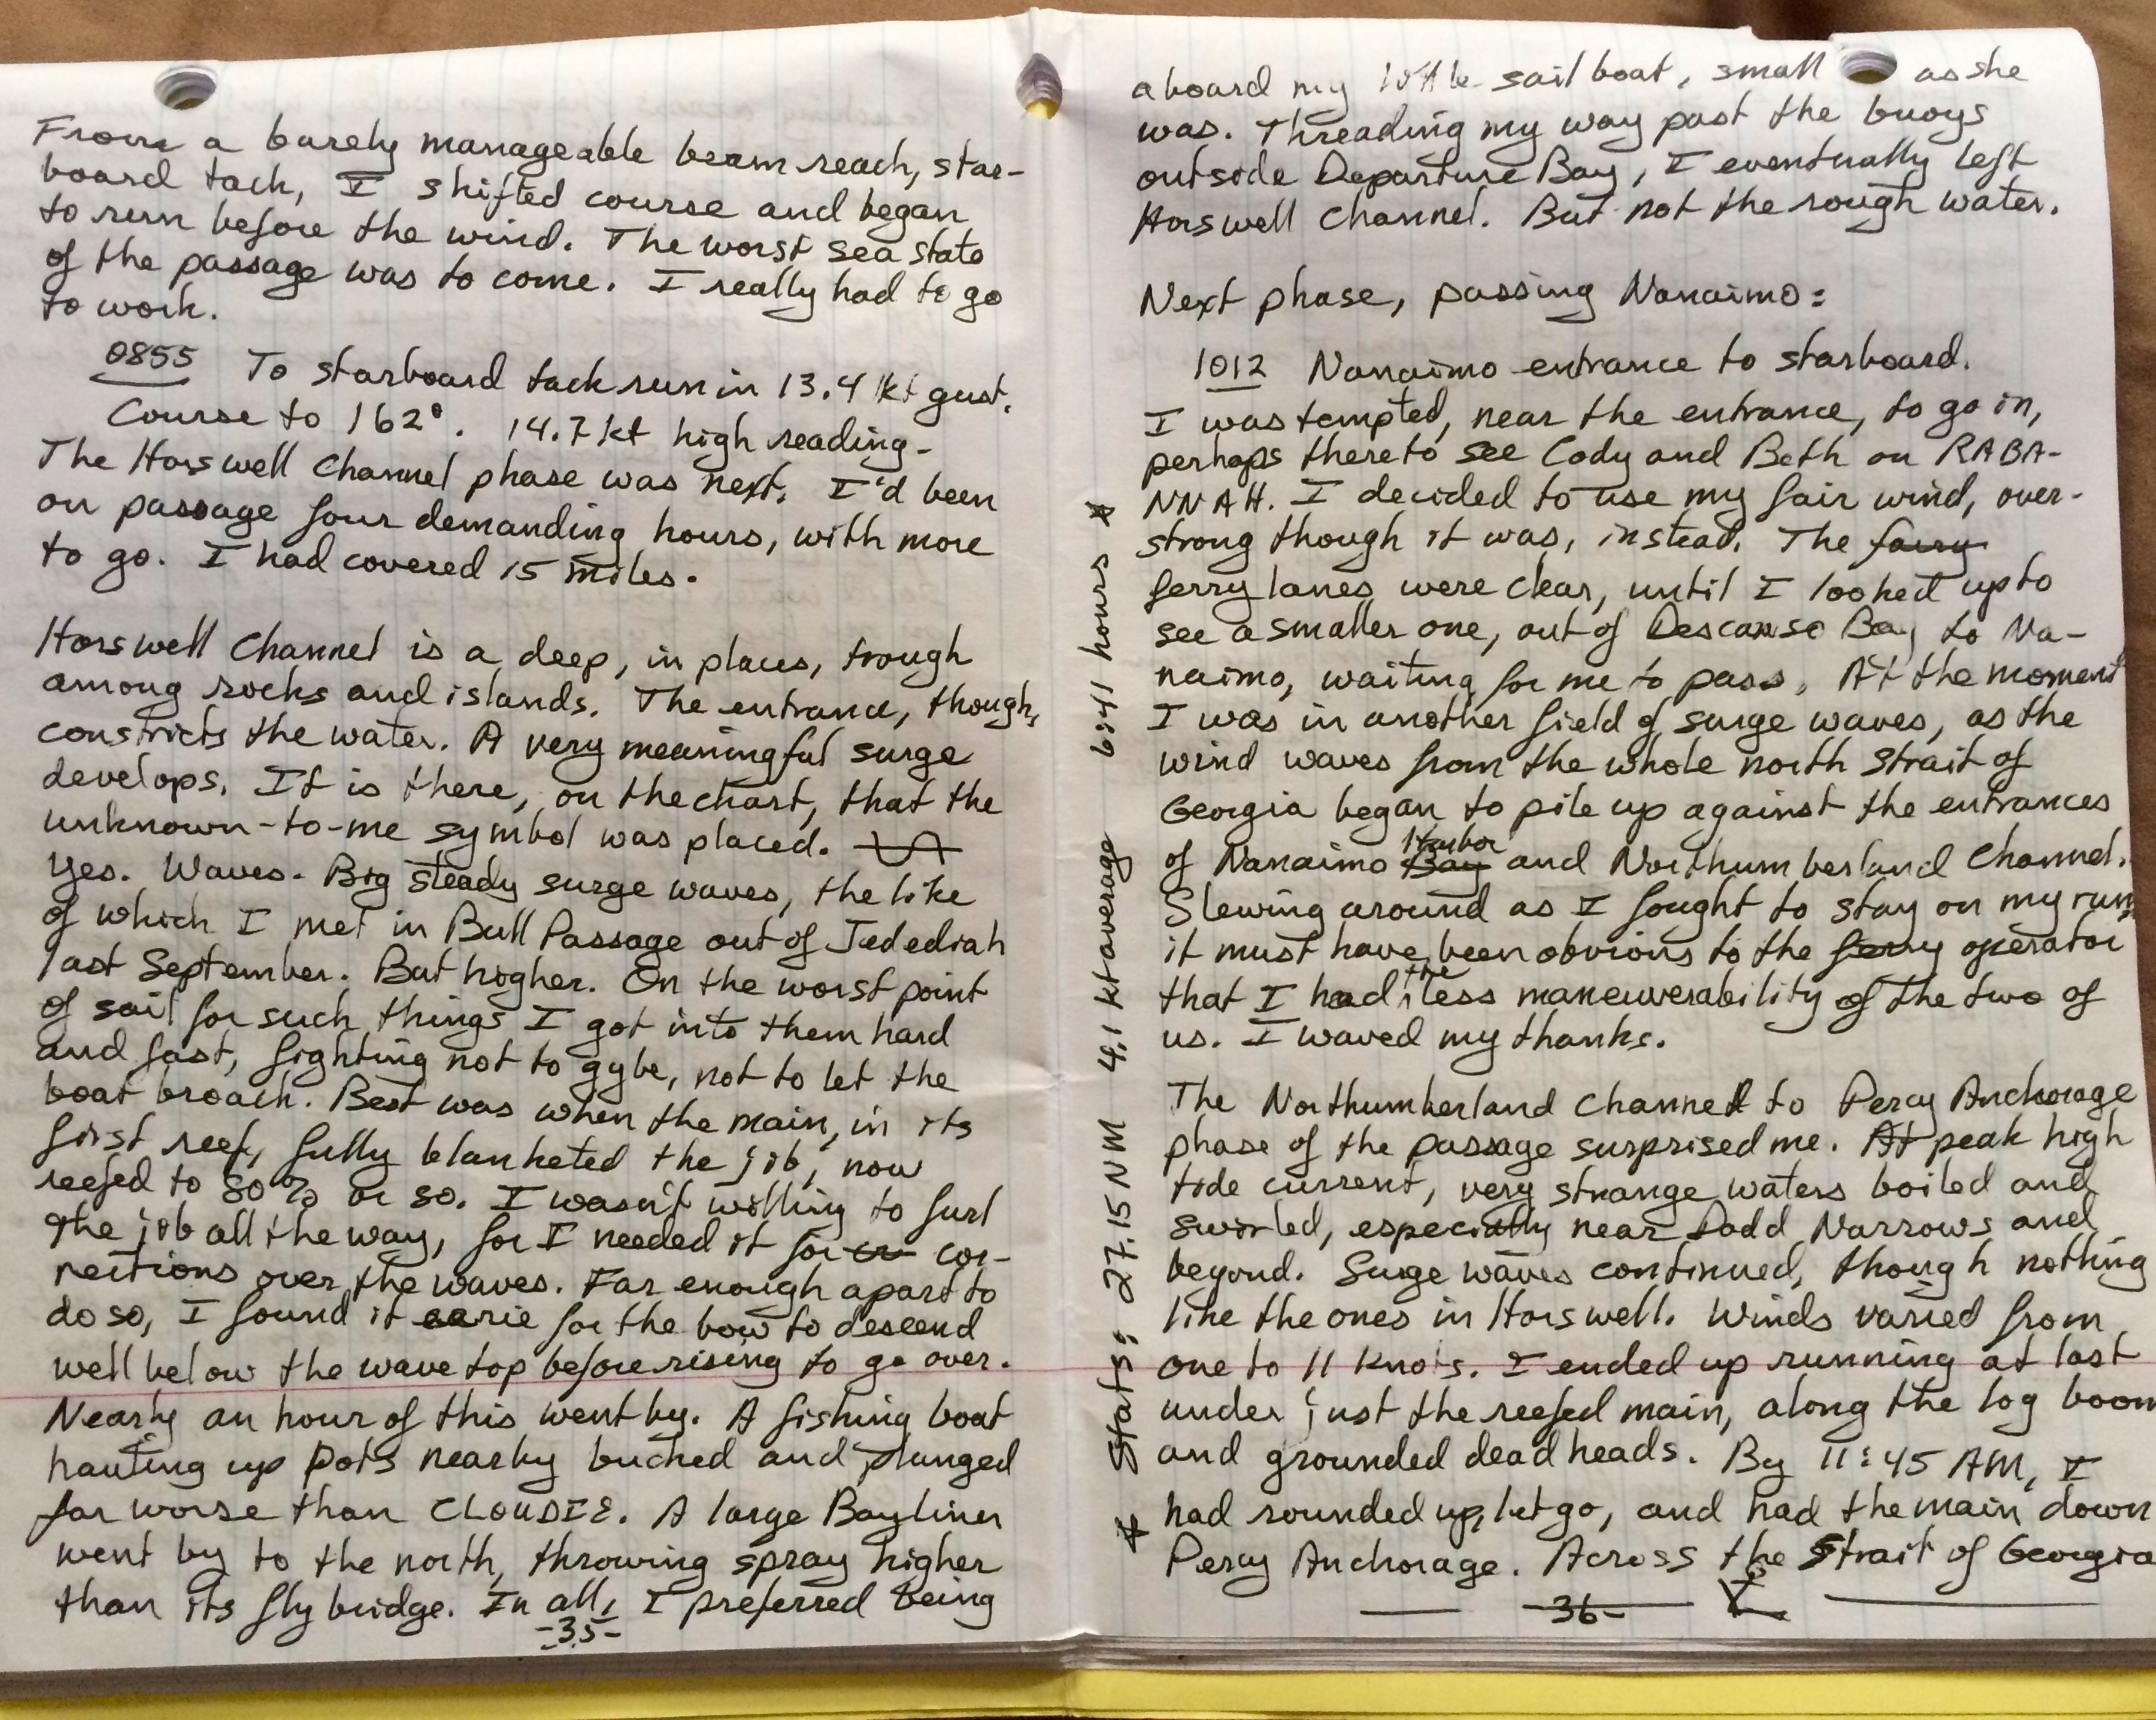 From a barely manageable beam reach, star-
board tack, I shifted course and began
to run before the wind. The worst sea state
of the passage was to come. I really had to go
to work.
0855 To starboard tack run in 13.4 kt gust.
Course to 162°. 14.7 kt high reading.
The Horswell Channel phase was next. I'd been
on passage four demanding hours, with more
to go. I had covered 15 miles.
Horswell Channel is a deep, in places, trough
among rocks and islands. The entrance, though,
constricts the water. A very meaningful surge
develops. It is there, on the chart, that the
unknown-to-me symbol was placed.
Yes. Waves. Big steady surge waves, the like
of which I met in Bull Passage out of Jedediah
last September. But higher. On the worst point
of sail for such things I got into them hard
and fast, fighting not to gybe, not to let the
boat broach. Best was when the main, in its
first reef, fully blanketed the jib, now
reefed to 80% or so. I wasn't willing to furl
the jib all the way, for I needed it for cor-
rections over the waves. Far enough apart to
do so, I found it eerie for the bow to descend
well below the wave top before rising to go over.
Nearly an hour of this went by. A fishing boat
hauling up pots nearby bucked and plunged
far worse than CLOUDIE. A large Bayliner
went by to the north, throwing spray higher
than its fly bridge. In all, I preferred being
-35-
aboard my little sail boat, small as she
was. Threading my way past the buoys
outside Departure Bay, I eventually left
Horswell Channel. But not the rough water.
Next phase, passing Nanaimo:
1012 Nanaimo entrance to starboard.
I was tempted, near the entrance, to go in,
perhaps there to see Cody and Beth on RABA-
NNAH. I decided to use my fair wind, over-
strong though it was, instead. The farry
ferry lanes were clear, until I looked up to
see a smaller one, out of Descanso Bay to Na-
naimo, waiting for me to pass. At the moment
I was in another field of surge waves, as the
wind waves from the whole north Strait of
Georgia began to pile up against the entrances
of Nanaimo Bay Harbor and Northumberland Channel.
Slewing around as I fought to stay on my run,
it must have been obvious to the ferry operator
that I had the less maneuverability of the two of
us. I waved my thanks.
The Northumberland Channel to Percy Anchorage
phase of the passage surprised me. At peak high
tide current, very strange waters boiled and
swirled, especially near Dodd Narrows and
beyond. Surge waves continued, though nothing
like the ones in Horswell. Winds varied from
one to 11 knots. I ended up running at last
under just the reefed main, along the log boom
and grounded dead heads. By 11:45 AM, I
had rounded up, let go, and had the main down
Percy Anchorage. Across the Strait of Georgia
-36-
* Stats: 27.15 NM 4.1 kt average 6:41 hours *